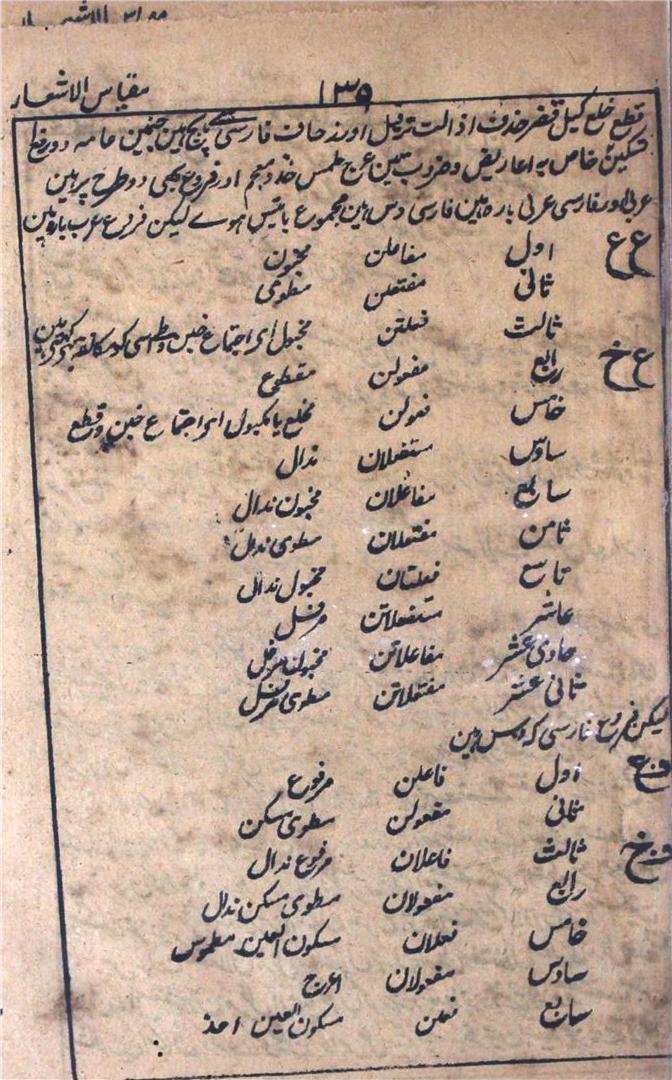 ۱۳۹ مقیاس الاشعار
قطع خلع کبل قصر حذف اذالت ترفیل اور زحاف فارسی سے پانچ ہین جنمین عامہ دو رفع
تسکین خاص بہ اعاریض و ضروب تین عرج طمس حذذ اور فروع بھی دو طرح پر ہین
عربی اور فارسی عربی بارہ ہین فارسی دس ہین مجموع بائیس ہوے لیکن فروع عرب بارہ ہین
ع ع اول مفاعلن مخبون
ثانی مفتعلن مطوی
ثالث فعلتن مخبول ای اجتماع خبن و طی اسی کو
ع خ رابع مفعولن مقطوع
خامس فعولن مخلع یا مکبول ای اجتماع خبن و قطع
سادس مستفعلان مذال
سابع مفاعلان مخبون مذال
ثامن مفتعلان مطوی مذال
تاسع فعلتان مخبول مذال
عاشر مستفعلاتن مرفل
حادی عشر مفاعلاتن مخبون مرفل
ثانی عشر مفتعلاتن مطوی مرفل
لیکن فروع فارسی کہ دس ہین
ف ع اول فاعلن مرفوع
ثانی مفعولن مطوی مسکن
ف خ ثالث فاعلان مرفوع مذال
رابع مفعولان مطوی مسکن مذال
خامس فعلان مسکون العین مطموس
سادس مفعولان اعرج
سابع فعلن مسکون العین احذ